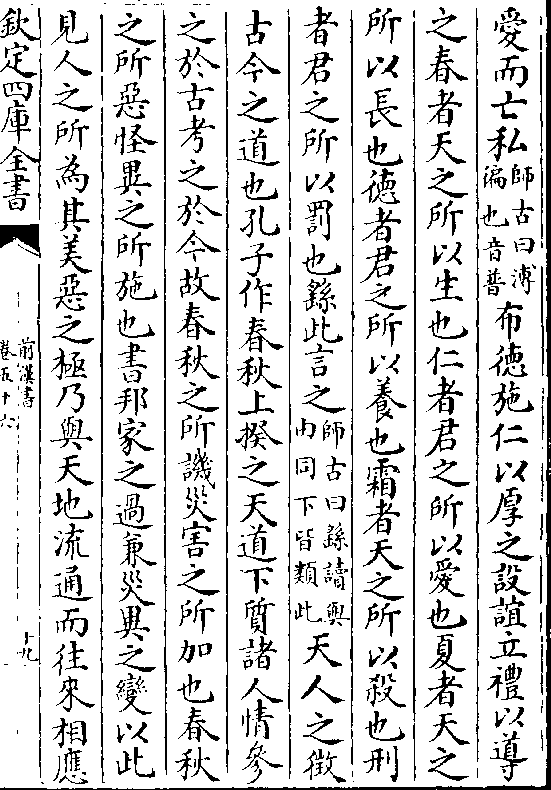 愛而亡私師古曰溥徧也音普布德施仁以厚之設誼立禮以導
之春者天之所以生也仁者君之所以愛也夏者天之
所以長也德者君之所以養也霜者天之所以殺也刑
者君之所以罰也繇此言之師古曰繇讀與由同下皆類此天人之徵
古今之道也孔子作春秋上揆之天道下質諸人情參
之於古考之於今故春秋之所譏災害之所加也春秋
之所惡怪異之所施也書邦家之過兼災異之變以此
見人之所為其美惡之極乃與天地流通而往來相應
欽定四庫全書
前漢書
卷五十六
十九